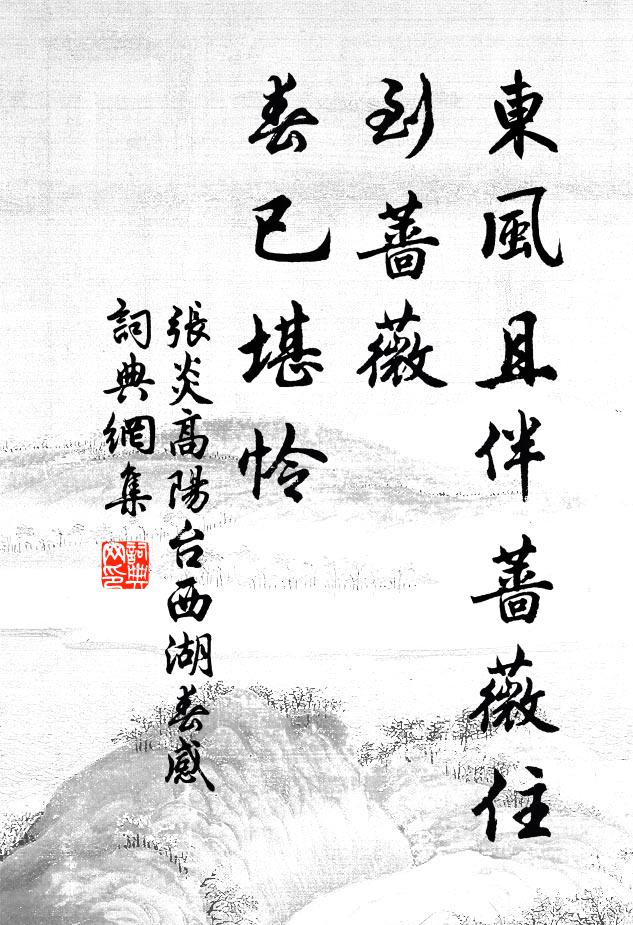 東風且伴薔薇住
到薔薇
春已堪憐
張炎高陽台西湖春感
詞典網集
詞典網印